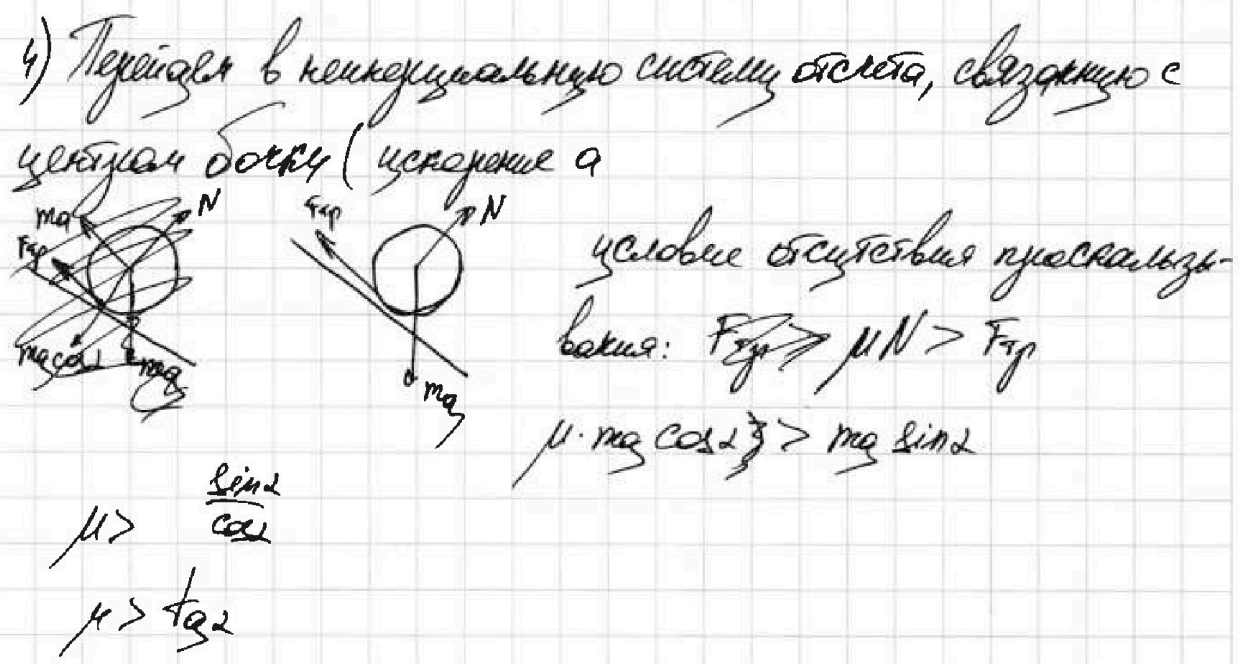 4) Перейдем в неинерциальную систему отсчета, связанную с
центром бочки ( ускорение a
N
Fтр
mg
условие отсутствия проскальзы-
вания: μN > Fтр
μ·mg cosα > mg sinα
μ > sinα / cosα
μ > tgα
ma
N
Fтр
mg cosα
mg